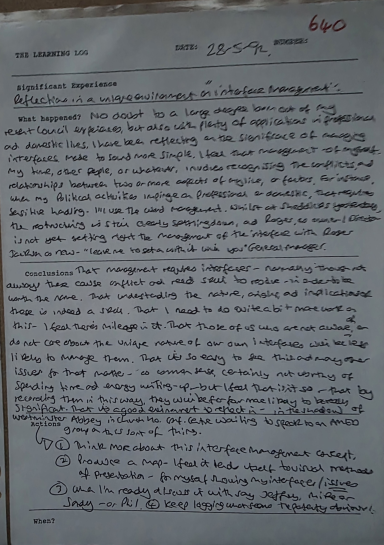 640
THE LEARNING LOG DATE: 28-5-92 NUMBER:
Significant Experience
Reflections in a unique environment on "interface management".
What happened? No doubt to a large degree born out of my
recent Council experiences, but also with plenty of applications in professional
and domestic lives, I have been reflecting on the significance of managing
interfaces made to sound more simple. I feel that management of myself
my time, other people, or whatever, involves recognising the conflicts and
relationships between two or more aspects of myself, or factors. For instance,
when my political activities impinge on professional or domestic, that requires
sensitive handling. I'll use the word management. Whilst at yesterday,
the restructuring of is clearly settling down, and
is not yet getting right the management of the interface with Roger
as new - "leave me to get on with it will you" General manager.
Conclusions That management requires interfaces - normally though not
always these cause conflict and need skill to resolve - in order to be
worth the name. That understanding the nature, origins and implications of
these is indeed a skill. That I need to do quite a bit more work on
this - I feel there's mileage in it. That those of us who are not aware, or
do not care about the unique nature of our own interfaces will be less
likely to manage them. That it's so easy to see this and many other
issues for that matter - as common sense, certainly not worthy of
spending time and energy writing-up - but I feel that it is so - that by
recording them in this way, they will be for me likely to be
significant. That it's a good environment to reflect in - in the shadow of
Westminster Abbey in Church Ho. Conf. Centre waiting to speak to an AMED
Actions group on this sort of thing.
① Think more about this interface management concept.
② Produce a map - I feel it lends itself to visual methods
of presentation - for myself showing my interfaces/issues
③ When I'm ready discuss it with say Jeffrey, Mike or
- or Phil ④ Keep logging
When?